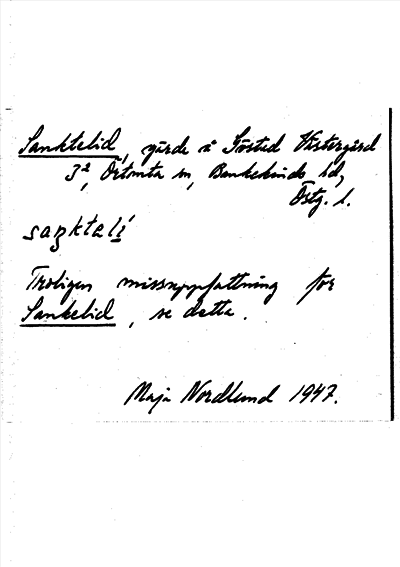 Sanktelid, gärde å Grösted Västergård
3², Örtomta sn, Bankekinds hd,
Östg. l.
saŋktalí
Troligen missuppfattning för
Sankelid, se detta.
Maja Nordlund 1947.